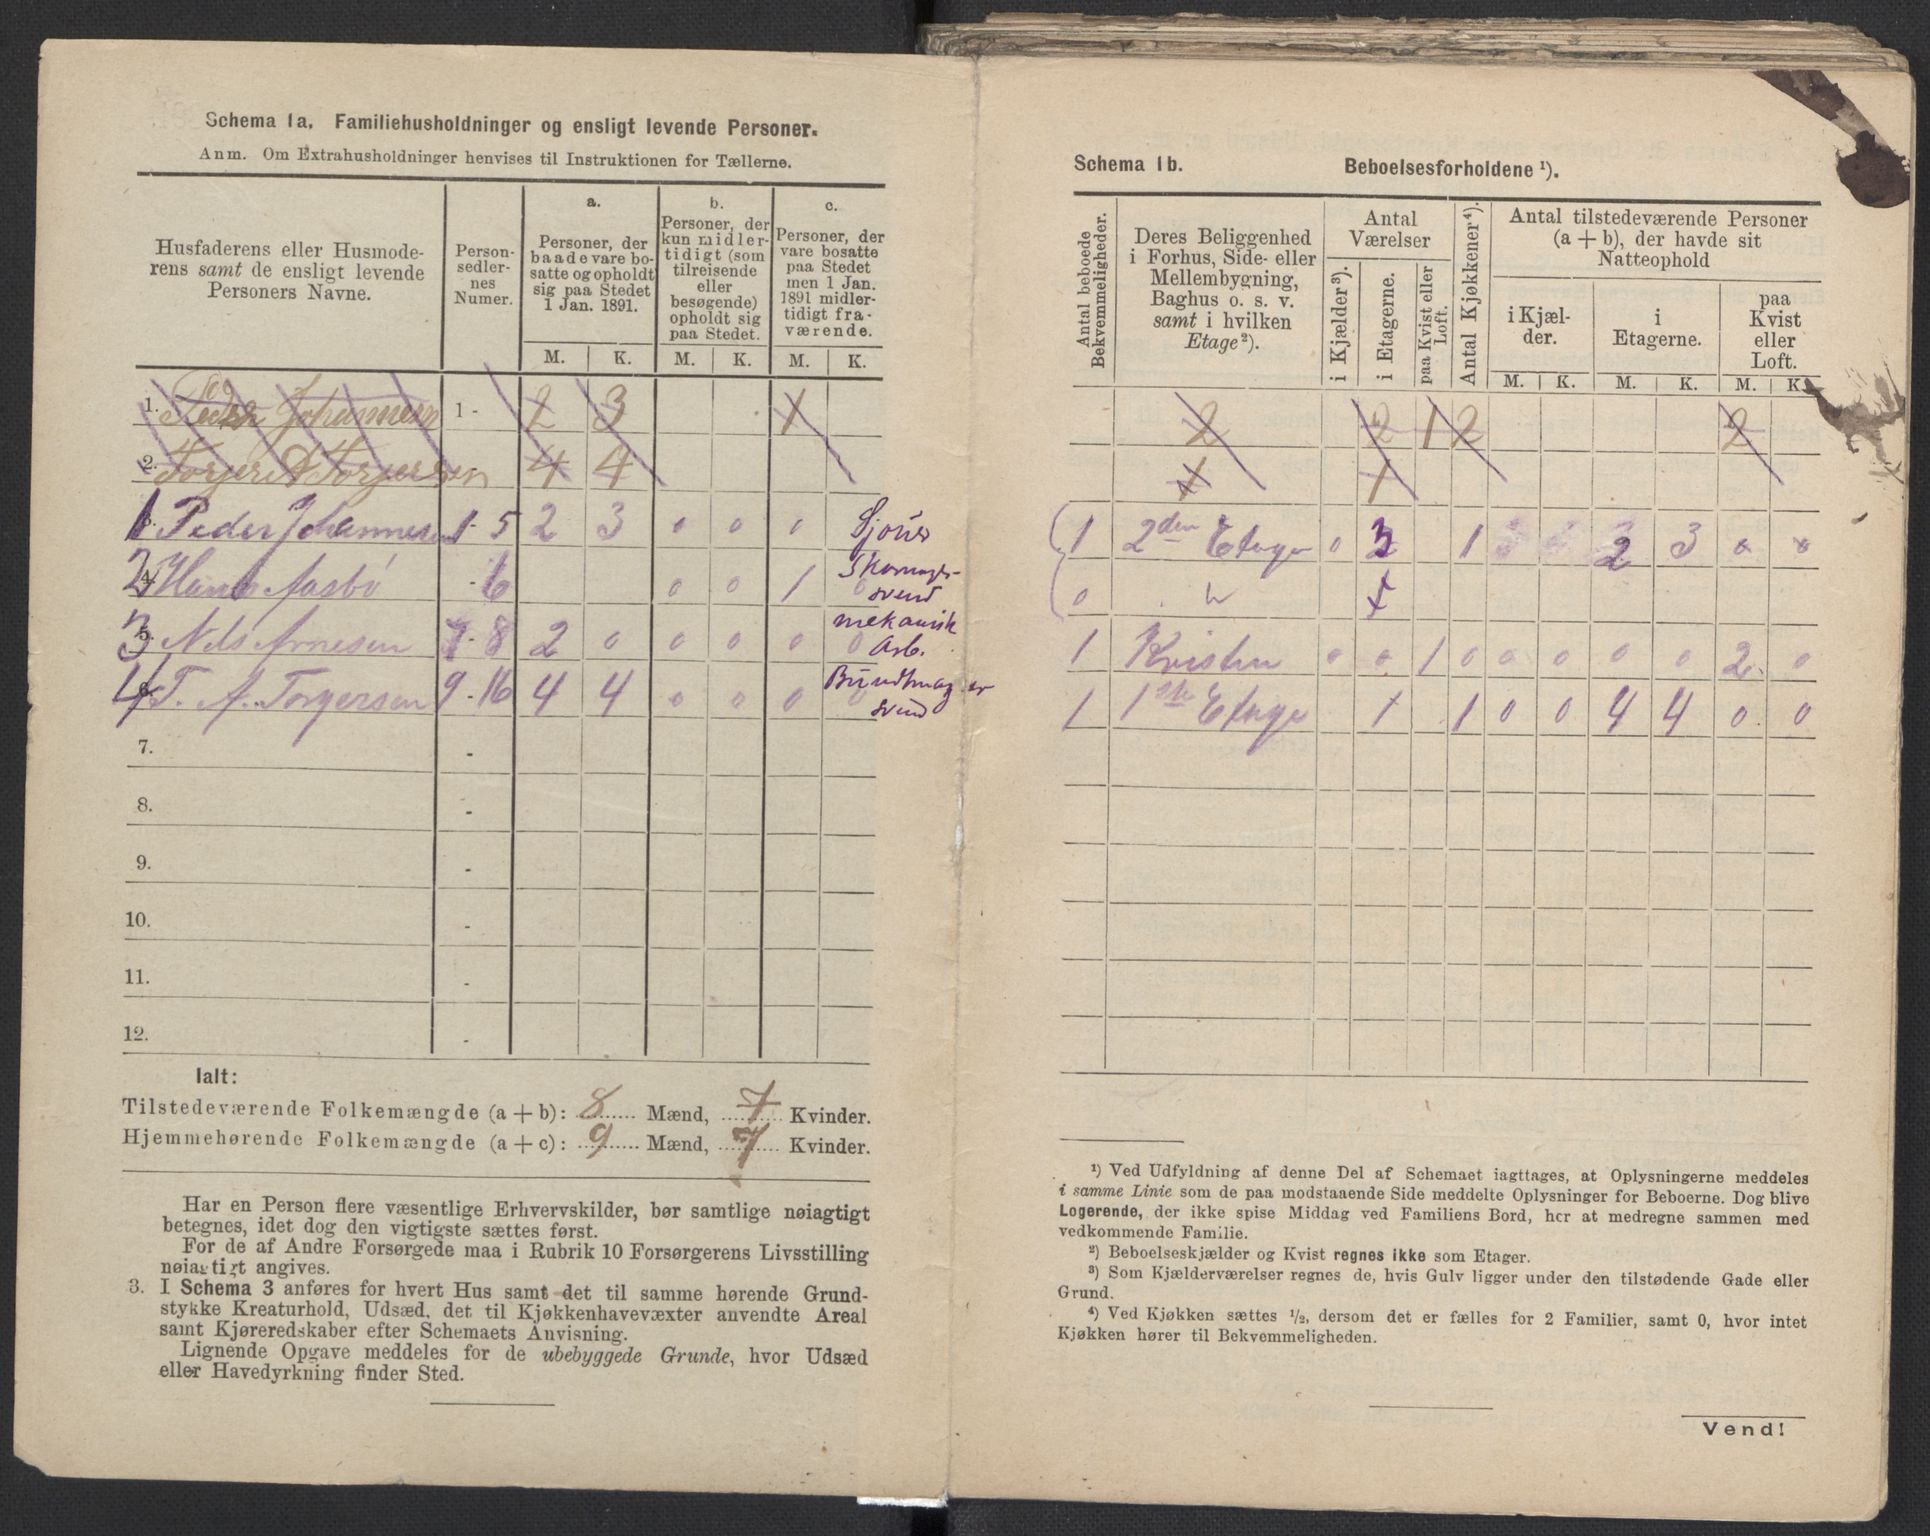 Schema 1a. Familiehusholdninger og ensligt levende Personer.
Anm. Om Extrahusholdninger henvises til Instruktionen for Tællerne.
Husfaderens eller Husmode-
rens samt de ensligt levende
Personers Navne.
Person-
sedler-
nes
Numer.
a.
Personer, der
baade vare bo-
satte og opholdt
sig paa Stedet
1 Jan. 1891.
b.
Personer, der
kun midler-
tidigt (som
tilreisende
eller
besøgende)
opholdt sig
paa Stedet.
c.
Personer, der
vare bosatte
paa Stedet
men 1 Jan.
1891 midler-
tidigt fra-
værende.
M. K. M. K. M. K.
1. Peder Johannesen 1 - 2 3 1
2. Torger A Torgersen - 4 4
1 3. Peder Johannesen 1 - 5 2 3 0 0 0 Sjouer
2 4. Hans Aasbø - 6 0 0 1 0 Skomager-
svend
3 5. Nels Arnesen 7 - 8 2 0 0 0 0 0 mekanisk
Arb.
4 6. T. A. Torgersen 9 - 16 4 4 0 0 0 0 Bundtmager
svend
7. -
8. -
9. -
10. -
11. -
12. -
Ialt:
Tilstedeværende Folkemængde (a + b): 8 Mænd, 7 Kvinder.
Hjemmehørende Folkemængde (a + c): 9 Mænd, 7 Kvinder.
Har en Person flere væsentlige Erhvervskilder, bør samtlige nøiagtigt
betegnes, idet dog den vigtigste sættes først.
For de af Andre Forsørgede maa i Rubrik 10 Forsørgerens Livsstilling
nøiagtigt angives.
3. I Schema 3 anføres for hvert Hus samt det til samme hørende Grund-
stykke Kreaturhold, Udsæd, det til Kjøkkenhavevæxter anvendte Areal
samt Kjøreredskaber efter Schemaets Anvisning.
Lignende Opgave meddeles for de ubebyggede Grunde, hvor Udsæd
eller Havedyrkning finder Sted.
Schema 1b. Beboelsesforholdene ¹).
Antal beboede
Bekvemmeligheder.
Deres Beliggenhed
i Forhus, Side- eller
Mellembygning,
Baghus o. s. v.
samt i hvilken
Etage²).
Antal
Værelser
i Kjælder³).
i Etagerne.
paa Kvist eller
Loft.
Antal Kjøkkener⁴).
Antal tilstedeværende Personer
(a + b), der havde sit
Natteophold
i Kjæl-
der.
i
Etagerne.
paa
Kvist
eller
Loft.
M. K. M. K. M. K.
2 2 1 2 2
1 1
1 2den Etage 0 3 1 2 3 0 0
0
1 Kvisten 0 0 1 0 0 0 0 0 2 0
1 1ste Etage 1 1 0 0 4 4 0 0
¹) Ved Udfyldning af denne Del af Schemaet iagttages, at Oplysningerne meddeles
i samme Linie som de paa modstaaende Side meddelte Oplysninger for Beboerne. Dog blive
Logerende, der ikke spise Middag ved Familiens Bord, her at medregne sammen med
vedkommende Familie.
²) Beboelseskjælder og Kvist regnes ikke som Etager.
³) Som Kjælderværelser regnes de, hvis Gulv ligger under den tilstødende Gade eller
Grund.
⁴) Ved Kjøkken sættes ½, dersom det er fælles for 2 Familier, samt 0, hvor intet
Kjøkken hører til Bekvemmeligheden.
Vend!